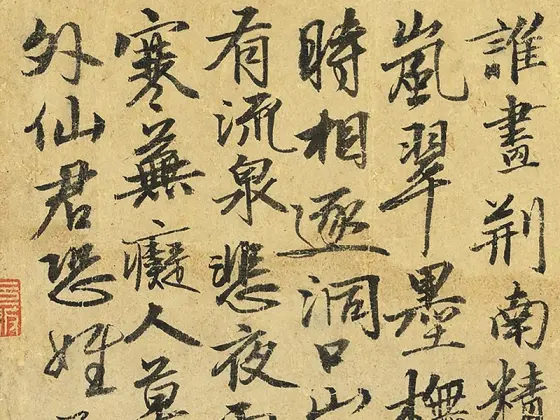 誰畫荆南精
嵐翠墨
時相逐洞口山
有流泉悲夜
寒蕪癡人
外仙君恐姓